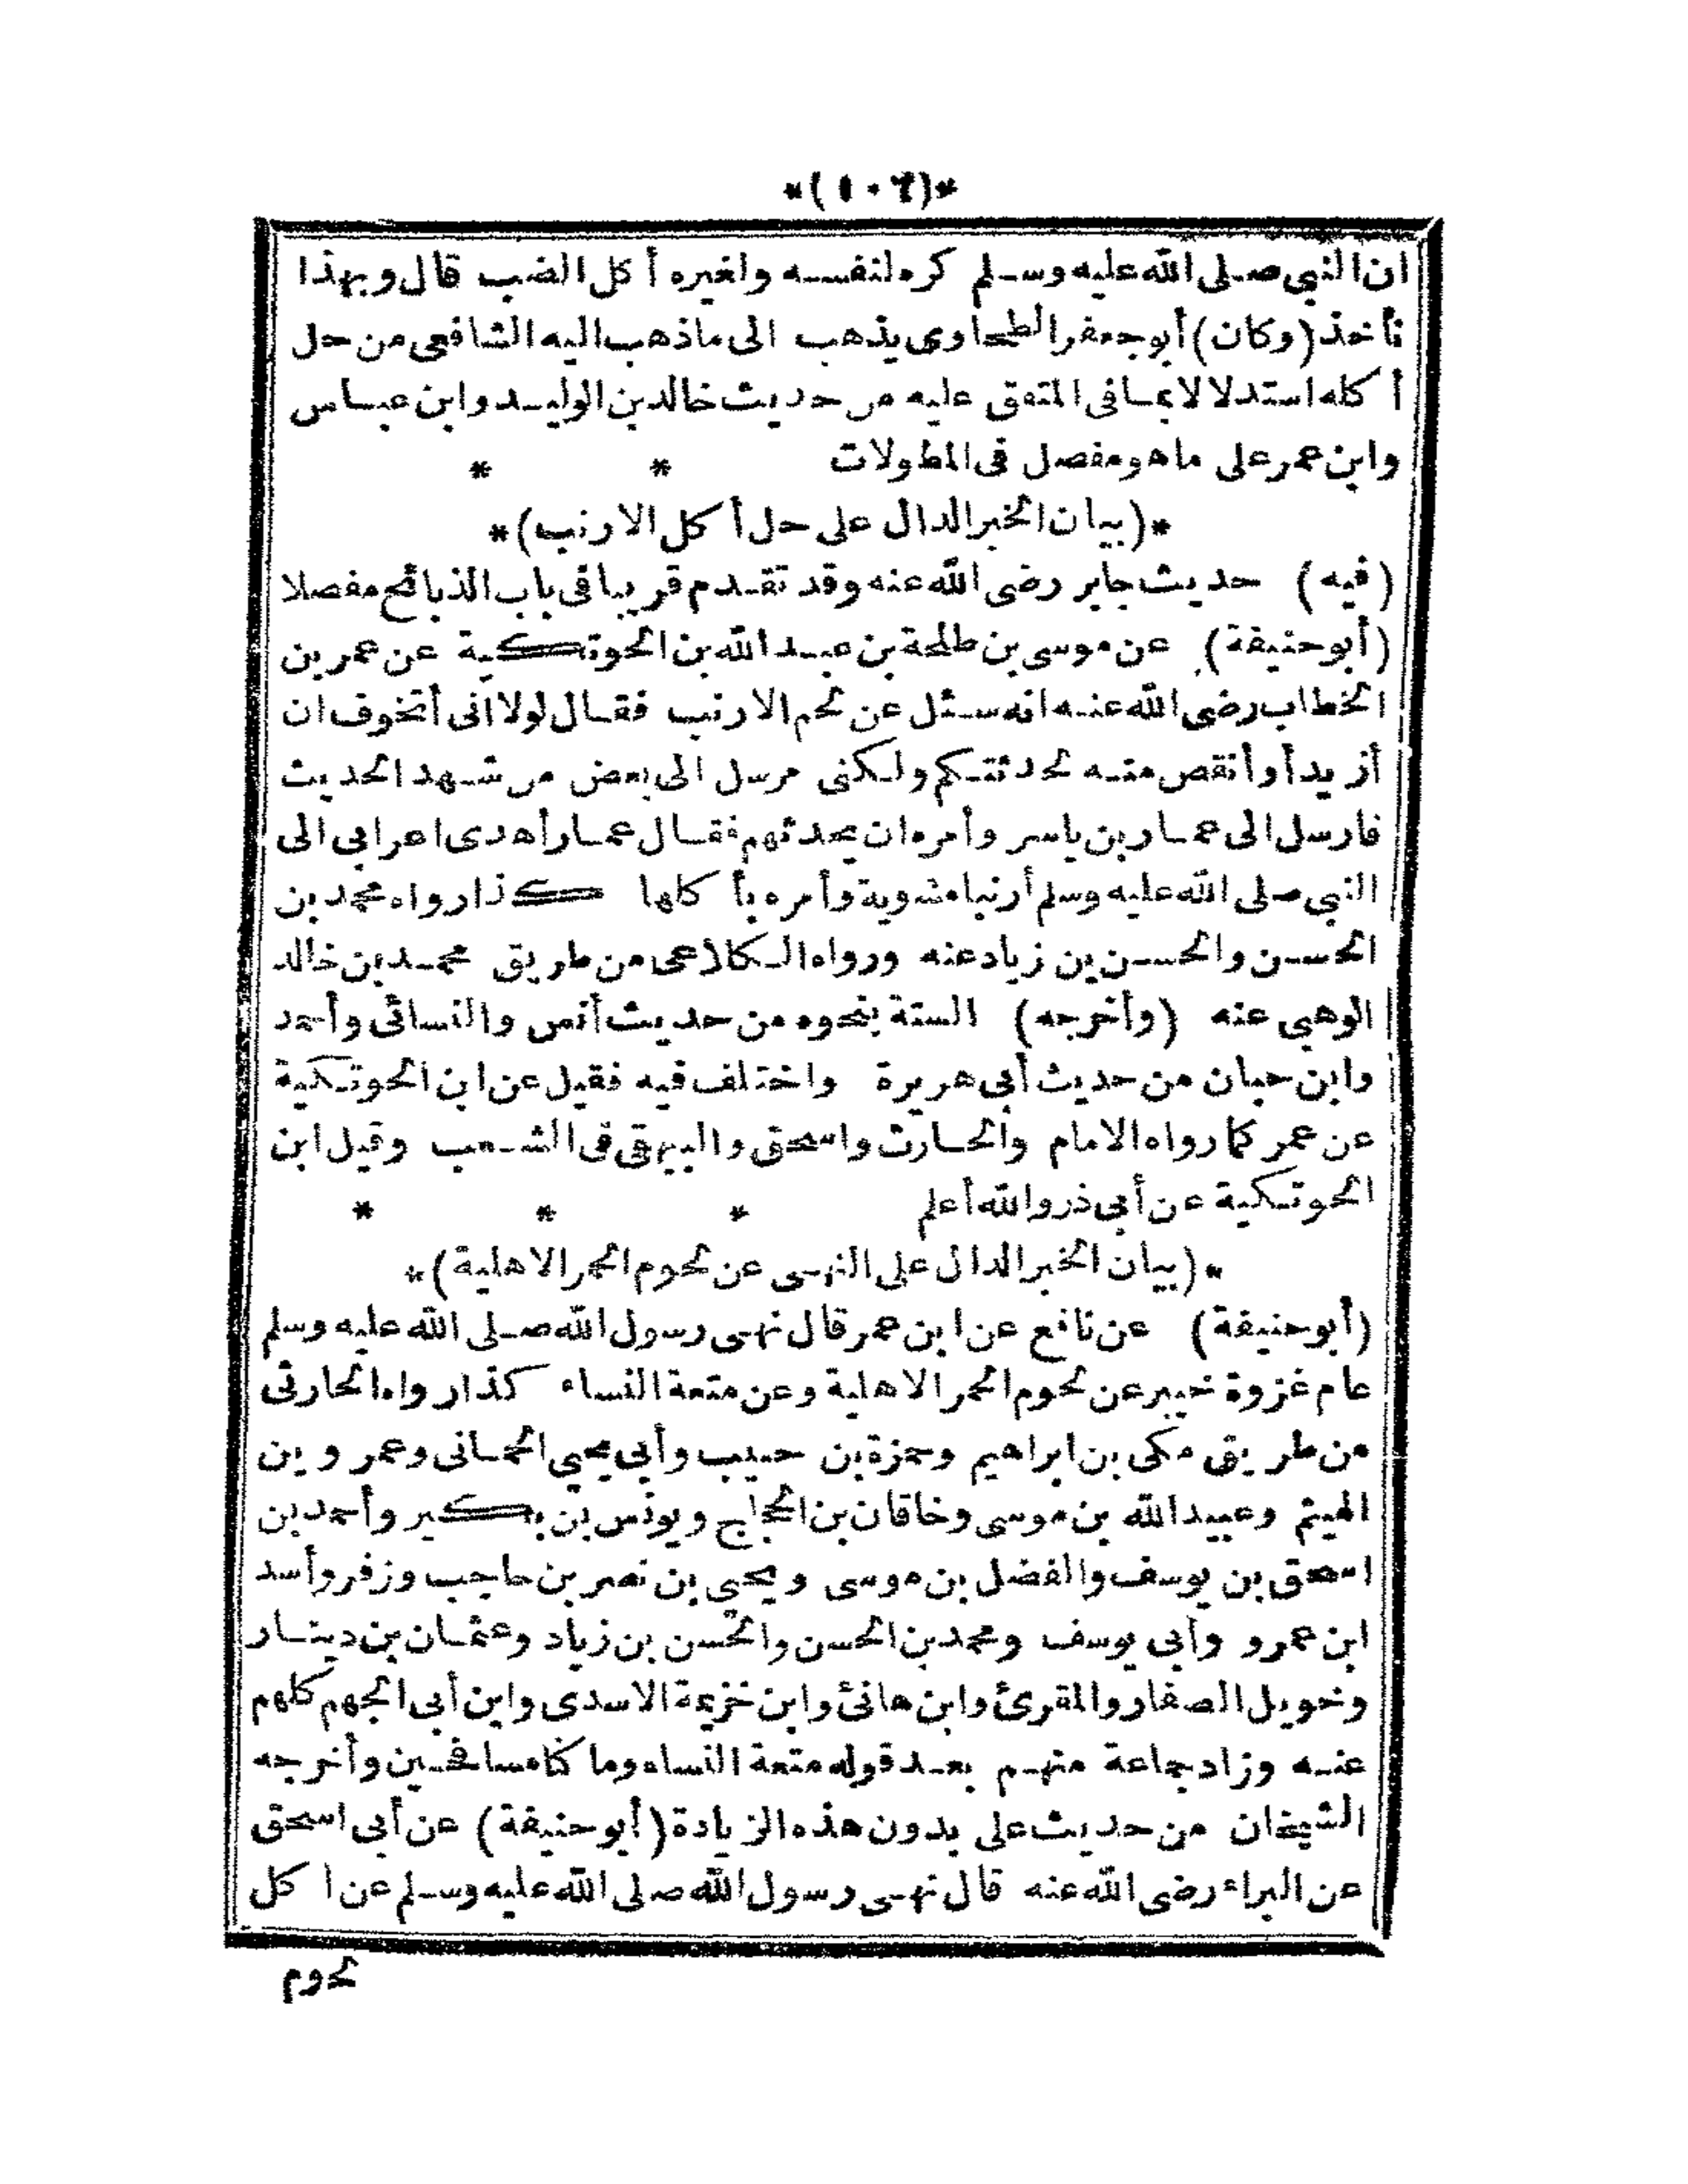 *(١٠٦)*
ان النبي صلى الله عليه وسلم كره لنفسه ولغيره أكل الضب قال وبهذا
نأخذ (وكان) أبو جعفر الطحاوى يذهب الى ما ذهب اليه الشافعى من حل
أكله استدلالا بما فى المتفق عليه من حديث خالد بن الوليد وابن عباس
وابن عمر على ما هو مفصل فى المطولات * *
*(بيان الخبر الدال على حل أكل الارنب)*
(فيه) حديث جابر رضى الله عنه وقد تقدم قريبا فى باب الذبائح مفصلا
(أبو حنيفة) عن موسى بن طلحة بن عبيد الله بن الحوتكية عن عمر بن
الخطاب رضى الله عنه انه سئل عن لحم الارنب فقال لولا انى أتخوف ان
أزيد أو أنقص منه لحدثتكم ولكنى مرسل الى بعض من شهد الحديث
فارسل الى عمار بن ياسر وأمره ان يحدثهم فقال عمار أهدى اعرابى الى
النبي صلى الله عليه وسلم أرنبا مشوية وأمره بأكلها كذا رواه محمد بن
الحسن والحسن بن زياد عنه ورواه الكلاعى من طريق محمد بن خالد
الوهبى عنه (وأخرجه) الستة بنحوه من حديث أنس والنسائى وأحمد
وابن حبان من حديث أبى هريرة واختلف فيه فقيل عن ابن الحوتكية
عن عمر كما رواه الامام والحارث واسحق والبيهقى فى الشعب وقيل ابن
الحوتكية عن أبى ذر والله أعلم * * *
*(بيان الخبر الدال على النهى عن لحوم الحمر الاهلية)*
(أبو حنيفة) عن نافع عن ابن عمر قال نهى رسول الله صلى الله عليه وسلم
عام غزوة خيبر عن لحوم الحمر الاهلية وعن متعة النساء كذا رواه الحارثى
من طريق مكى بن ابراهيم وحمزة بن حبيب وأبى يحيي الحمانى وعمرو بن
الهيثم وعبيد الله بن موسى وخاقان بن الحجاج ويونس بن بكير وأحمد بن
اسحق بن يوسف والفضل بن موسى ويحيي بن نصر بن حاجب وزفر وأسد
ابن عمرو وأبى يوسف ومحمد بن الحسن والحسن بن زياد وعثمان بن دينار
وخويل الصفار والمقرئ وابن هانئ وابن خزيمة الاسدى وابن أبى الجهم كلهم
عنه وزاد جماعة منهم بعد قوله متعة النساء وما كنا مسافحين وأخرجه
الشيخان من حديث على بدون هذه الزيادة (أبو حنيفة) عن أبى اسحق
عن البراء رضى الله عنه قال نهى رسول الله صلى الله عليه وسلم عن اكل
لحوم